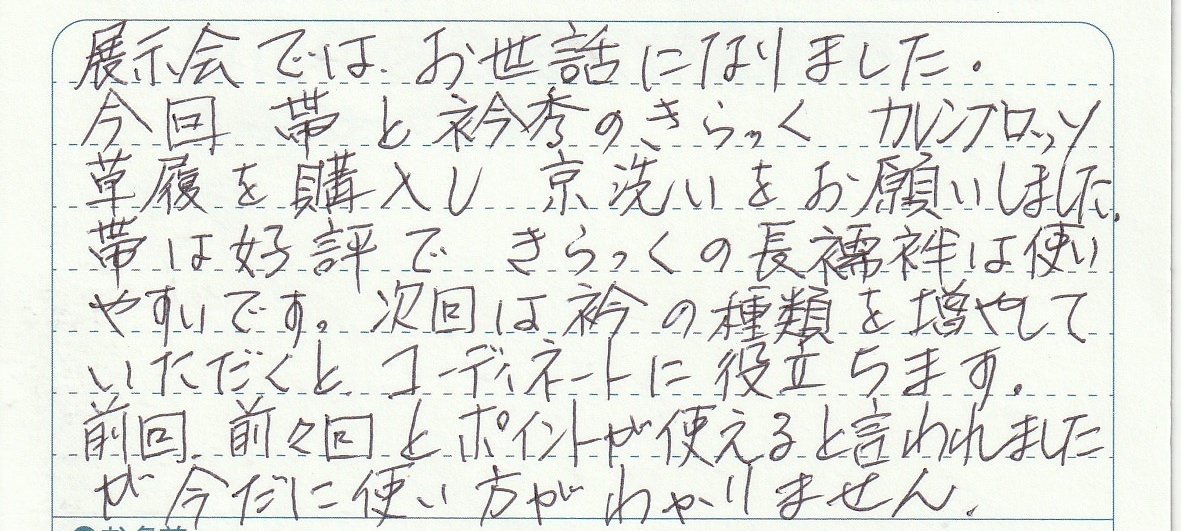 展示会では、お世話になりました。
今回 帯と衿秀のきらっく カレンブロッソ
草履を購入し 京洗いをお願いしました。
帯は好評で きらっくの長襦袢は使い
やすいです。次回は衿の種類を増やして
いただくと、コーディネートに役立ちます。
前回、前々回とポイントが使えると言われました
が今だに使い方がわかりません。